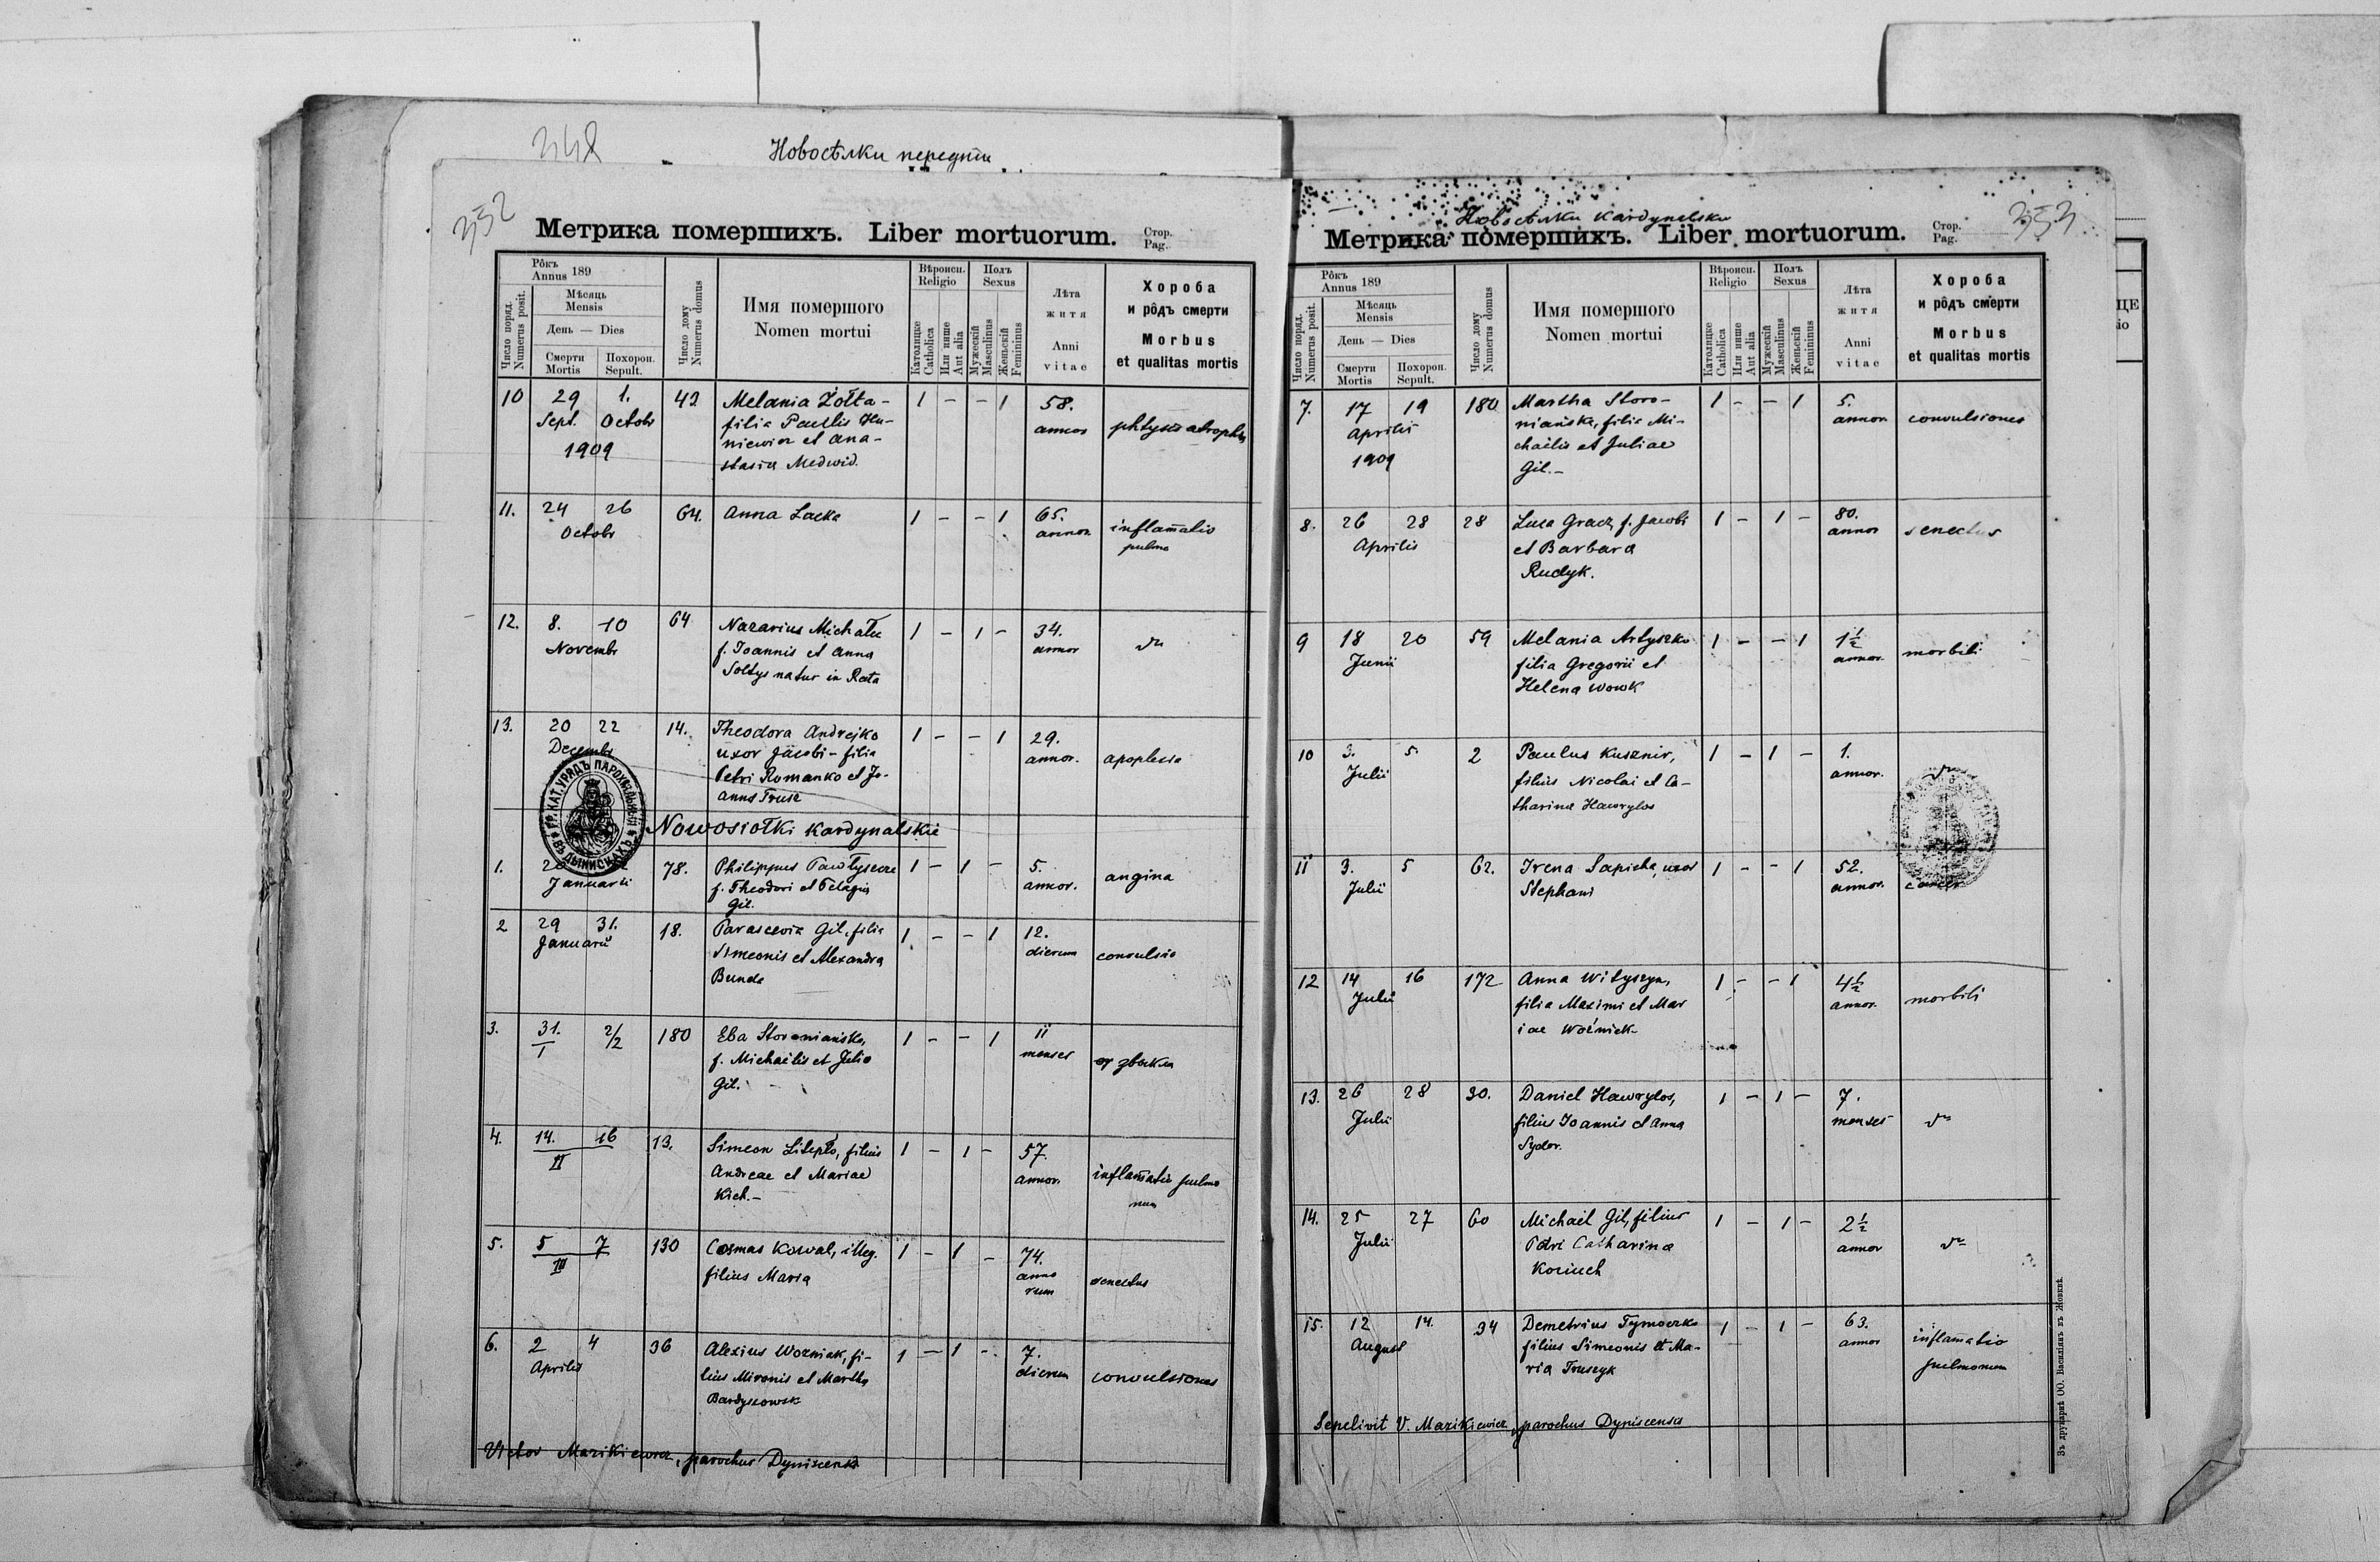 348
Новосѣлки передніи
352
Метрика помершихъ. Liber mortuorum. Стор. Pag.
Число поряд. Numerus posit.
Рôкъ Annus 189
Мѣсяць Mensis
День — Dies
Смерти Mortis
Похорон. Sepult.
Число дому Numerus domus
Имя помершого Nomen mortui
Вѣроисп. Religio
Католицке Catholica
Или нише Aut alia
Полъ Sexus
Мужескій Masculinus
Женьскій Femininus
Лѣта житя Anni vitae
Хороба и рôдъ смерти Morbus et qualitas mortis
10 29 1. 42 Melania Żołta – 1 – – 1 58.
Sept. Octobr filia Paulis Hu- annor phtysis atrophia
1909 niewicz et Ana-
stasia Medwid.
11. 24 26 64. Anna Lacka 1 – – 1 65.
Octobr annor. inflam̄atio
pulmo
12. 8. 10 64 Nazarius Michału 1 – 1 – 34.
Novembr f. Joannis et Anna annor dto
Soltys natur in Rata
13. 20 22 14. Theodora Andrejko 1 – – 1 29.
Decembr uxor Jacobi – filia annor. apoplexia
Petri Romanko et Jo-
anna Trusz
ГР. КАТ. УРЯДЪ ПАРОХІЯЛЬНЫЙ ВЪ ДЫНИСКАХЪ
Nowosiołki Kardynalskie
1. 78. Philippus Pawłyszcze 1 – 1 – 5.
Januarii f. Theodori et Pelagia annor. angina
Gil.
2 29 31. 18. Parascevia Gil, filia 1 – – 1 12.
Januarii Simeonis et Alexandra dierum convulsio
Bunda
3. 31. 2/2 180 Eva Storoniańska, 1 – – 1 11
I f. Michaëlis et Julia menses
Gil.
4. 14. 16 13. Simeon Litepło, filius 1 – 1 – 57.
II Andreae et Mariae annor. inflam̄atio pulmo
Kich.– num
5. 5 7 130 Cosmas Kowal, illeg. 1 – 1 – 74.
III filius Maria anno
rum senectus
6. 2 4 36 Alexius Wozniak, fi- 1 – 1 – 7.
Aprilis lius Mironis et Martha dierum convulsiones
Bardyszowsk
Victor Mazikiewicz, parochus Dyniscensis
Новосѣлки Kardynalsku
353
Метрика помершихъ. Liber mortuorum. Стор. Pag.
Число поряд. Numerus posit.
Рôкъ Annus 189
Мѣсяць Mensis
День — Dies
Смерти Mortis
Похорон. Sepult.
Число дому Numerus domus
Имя помершого Nomen mortui
Вѣроисп. Religio
Католицке Catholica
Или нише Aut alia
Полъ Sexus
Мужескій Masculinus
Женьскій Femininus
Лѣта житя Anni vitae
Хороба и рôдъ смерти Morbus et qualitas mortis
7. 17 19 180 Martha Storo- 1 – – 1 5.
Aprilis niańska, filia Mi- annor convulsiones
1909 chaëlis et Juliae
Gil.–
8. 26 28 28 Luca Gracz, f. Jacobi 1 – 1 – 80.
Aprilis et Barbara annor senectus
Rudyk.
9 18 20 59 Melania Artyszko 1 – – 1 1½
Junii filia Gregorii et annor. morbili
Helena Wowk
10 3. 5. 2 Paulus Kusznir, 1 – 1 – 1.
Julii filius Nicolai et Ca- annor. dto
tharina Hawrylos
11 3. 5 62. Irena Sapieha, uxor 1 – – 1 52.
Julii Stephani annor. cancer
12 14 16 172 Anna Wityszyn, 1 – – 1 4½
Julii filia Maximi et Mar annor. morbili
iae Woźniak
13. 26 28 30. Daniel Hawrylos, 1 – 1 – 7.
Julii filius Joannis et Anna menses dto
Sydor.
14. 25 27 60 Michail Gil, filius 1 – 1 – 2½
Julii Petri Catharina annor dto
Koziuch
15. 12 14. 34 Demetrius Tymoczko 1 – 1 – 63.
August filius Simeonis et Ma- annor inflamatio
ria Truszyk pulmonum
Sepelivit V. Mazikiewicz, parochus Dyniscensis
Зъ друкарнѣ ОО. Василіянъ въ Жовквѣ.